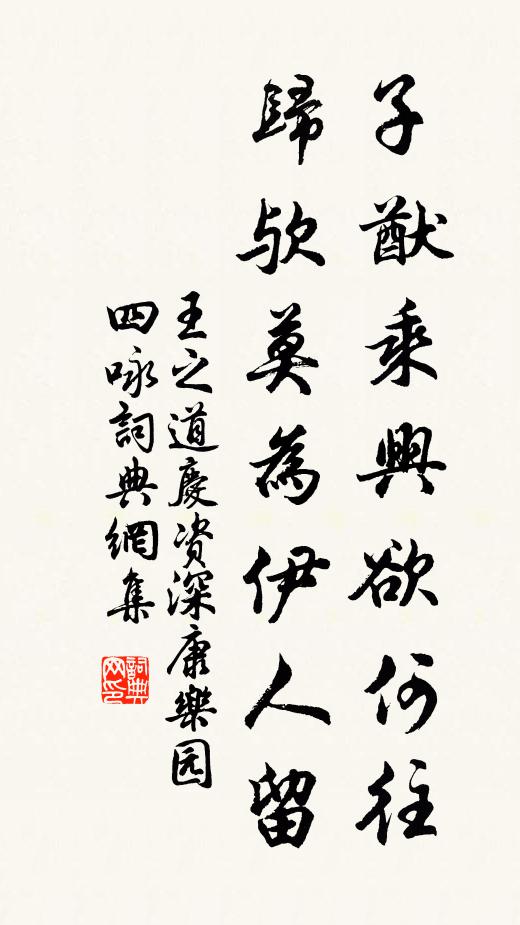 子猷乘興欲何往
歸歟莫為伊人留
王之道慶资深康樂园
四咏詞典網集
詞典网印